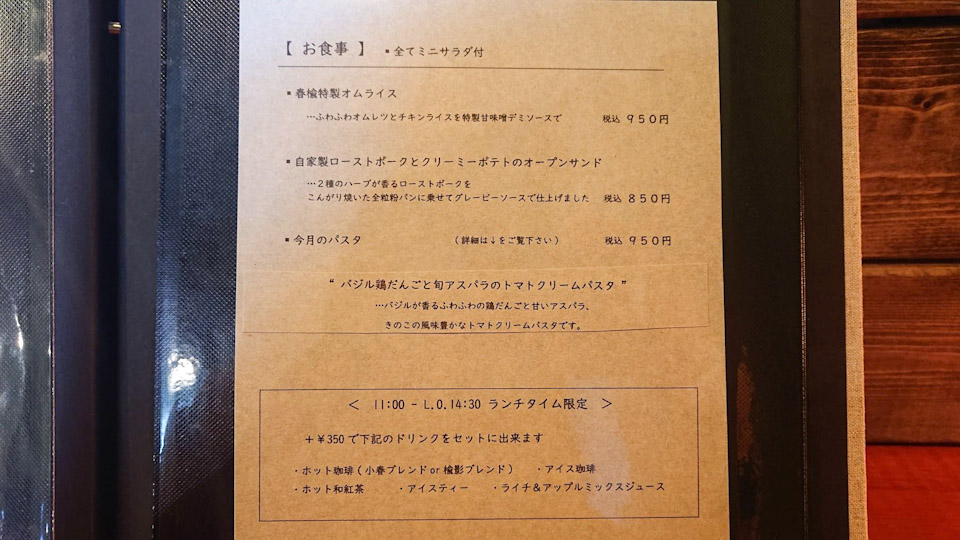 【 お食事 】 ▪全てミニサラダ付
▪春楡特製オムライス
…ふわふわオムレツとチキンライスを特製甘味噌デミソースで 税込 950円
▪自家製ローストポークとクリーミーポテトのオープンサンド
…2種のハーブが香るローストポークを
こんがり焼いた全粒粉パンに乗せてグレービーソースで仕上げました 税込 850円
▪今月のパスタ (詳細は↓をご覧下さい) 税込 950円
“ バジル鶏だんごと旬アスパラのトマトクリームパスタ ”
…バジルが香るふわふわの鶏だんごと甘いアスパラ、
きのこの風味豊かなトマトクリームパスタです。
< 11:00 - L.O.14:30 ランチタイム限定 >
+¥350で下記のドリンクをセットに出来ます
・ホット珈琲(小春ブレンドor楡影ブレンド) ・アイス珈琲
・ホット和紅茶 ・アイスティー ・ライチ&アップルミックスジュース